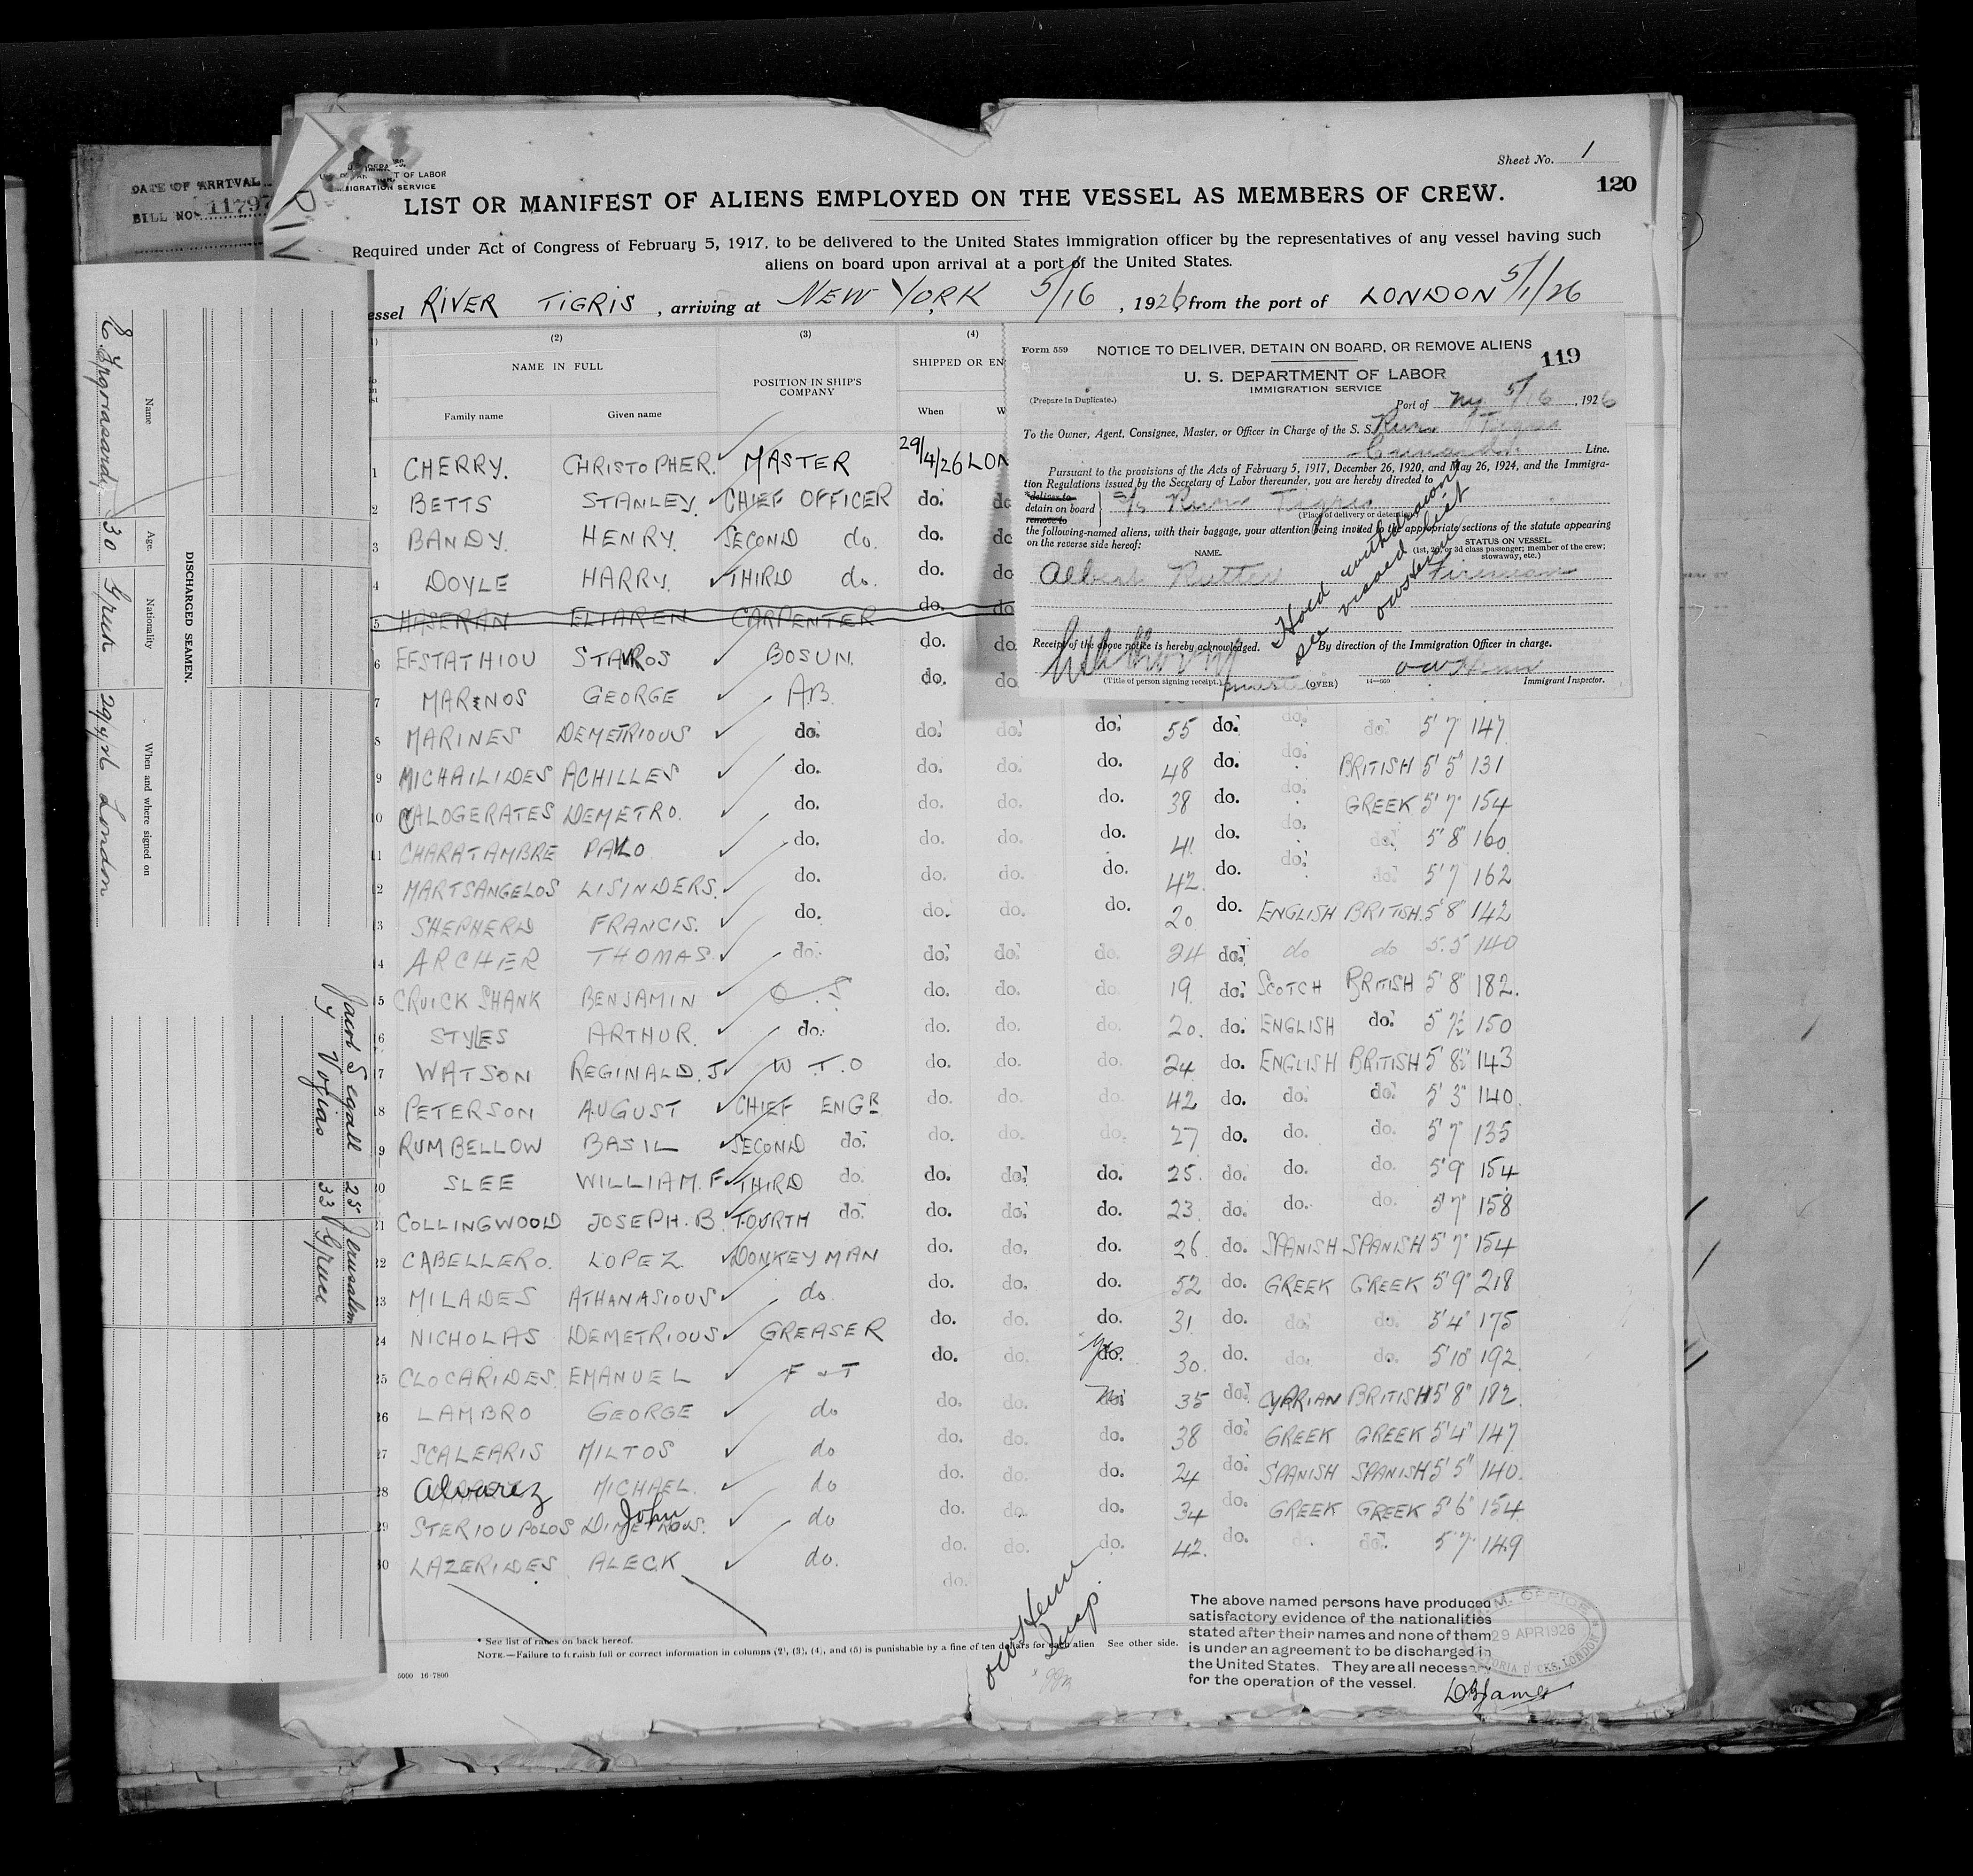 DATE OF ARRIVAL
BILL NO. 11797
Sheet No. 1
120
OF LABOR
IMMIGRATION SERVICE
LIST OR MANIFEST OF ALIENS EMPLOYED ON THE VESSEL AS MEMBERS OF CREW.
Required under Act of Congress of February 5, 1917, to be delivered to the United States immigration officer by the representatives of any vessel having such
aliens on board upon arrival at a port of the United States.
essel RIVER TIGRIS, arriving at NEW YORK 5/16, 1926, from the port of LONDON 5/1/26
(2) (3) (4)
NAME IN FULL
POSITION IN SHIP'S COMPANY
SHIPPED OR EN
Family name Given name When W
1 CHERRY. CHRISTOPHER. MASTER 29/4/26 LON
2 BETTS STANLEY. CHIEF OFFICER do. do
3 BANDY. HENRY. SECOND do. do. do
4 DOYLE HARRY. THIRD do. do. do
5 HASERAN ELIAREN CARPENTER do. do
6 EFSTATHIOU STAVROS BOSUN. do. do
7 MARINOS GEORGE A.B. do. do
8 MARINES DEMETRIOUS do. do. do. do. 55 do. do. do. 5' 7" 147
9 MICHAILIDES ACHILLES do. do. do. do. 48 do. do. BRITISH 5' 5" 131
10 CALOGERATES DEMETRO. do. do. do. do. 38 do. do. GREEK 5' 7" 154
11 CHARATAMBRE PAVLO do. do. do. do. 41 do. do. do. 5' 8" 160
12 MARTSANGELOS LISINDERS. do. do. do. do. 42 do. do. do. 5' 7 162
13 SHEPHERD FRANCIS. do. do. do. do. 20 do. ENGLISH BRITISH. 5' 8" 142
14 ARCHER THOMAS. do. do. do. do. 24 do. do do 5.5 140
15 CRUICKSHANK BENJAMIN O.S do. do. do. 19 do. SCOTCH BRITISH 5' 8" 182.
16 STYLES ARTHUR. do. do. do. do. 20. do. ENGLISH do. 5' 7½ 150
17 WATSON REGINALD. J W.T.O do. do. do. 24 do. ENGLISH BRITISH 5' 8½" 143
18 PETERSON AUGUST CHIEF ENGR do. do. do. 42 do. do. do. 5' 3" 140.
19 RUMBELLOW BASIL SECOND do. do. do. do. 27 do. do. do. 5' 7" 135
20 SLEE WILLIAM. F THIRD do. do. do. do. 25. do. do. do. 5' 9" 154
21 COLLINGWOOD JOSEPH. B. FOURTH do. do. do. do. 23. do. do. do. 5' 7" 158
22 CABELLERO. LOPEZ. DONKEYMAN do. do. do. 26. do. SPANISH SPANISH 5' 7" 154
23 MILADES ATHANASIOUS do. do. do. do. 52 do. GREEK GREEK 5' 9" 218
24 NICHOLAS DEMETRIOUS GREASER do. do. do. 31. do. do. do. 5' 4" 175
25 CLOCARIDES. EMANUEL F & T do. do. do. 30. do. do. do. 5' 10" 192
26 LAMBRO GEORGE do do. do. 35 do. CYPRIAN BRITISH 5' 8" 182.
27 SCALEARIS MILTOS do do. do. do. 38 do. GREEK GREEK 5' 4" 147
28 Alvarez MICHAEL. do do. do. do. 24 do. SPANISH SPANISH 5' 5" 140.
John
29 STERIOUPOLOS DIMETROUS. do do. do. do. 34 do. GREEK GREEK 5' 6" 154
30 LAZERIDES ALECK do. do. do. do. 42. do. do. do. 5' 7" 149
do.
* See list of races on back hereof.
NOTE.—Failure to furnish full or correct information in columns (2), (3), (4), and (5) is punishable by a fine of ten dollars for each alien See other side.
Insp.
The above named persons have produced
satisfactory evidence of the nationalities
stated after their names and none of them
is under an agreement to be discharged in
the United States. They are all necessary
for the operation of the vessel.
29 APR 1926
DOCKS, LONDON
Form 559
NOTICE TO DELIVER, DETAIN ON BOARD, OR REMOVE ALIENS
119
U. S. DEPARTMENT OF LABOR
IMMIGRATION SERVICE
(Prepare in Duplicate.)
Port of NY 5/16, 1926
To the Owner, Agent, Consignee, Master, or Officer in Charge of the S. S. River Tigris
Line.
Pursuant to the provisions of the Acts of February 5, 1917, December 26, 1920, and May 26, 1924, and the Immigra-
tion Regulations issued by the Secretary of Labor thereunder, you are hereby directed to
*deliver to
detain on board
remove to
S/S River Tigris
(Place of delivery or detention)
the following-named aliens, with their baggage, your attention being invited to the appropriate sections of the statute appearing
on the reverse side hereof:
NAME.
STATUS ON VESSEL
(1st, 2d, or 3d class passenger; member of the crew; stowaway, etc.)
Albert Rutter Fireman
Hold withdrawn
see visaed list
Receipt of the above notice is hereby acknowledged.
By direction of the Immigration Officer in charge.
(Title of person signing receipt.) master
(OVER)
14—559
Immigrant Inspector.
DISCHARGED SEAMEN.
Name Age. Nationality When and where signed on
30 Greek 29/4/26 London
Jacob Segall 25 Jerusalem
Y Vogias 33 Greece